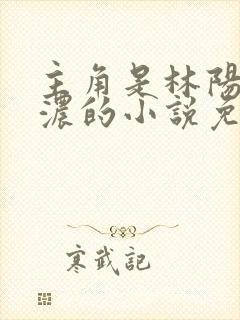 主角是林陽
濃的小說免
寒武記